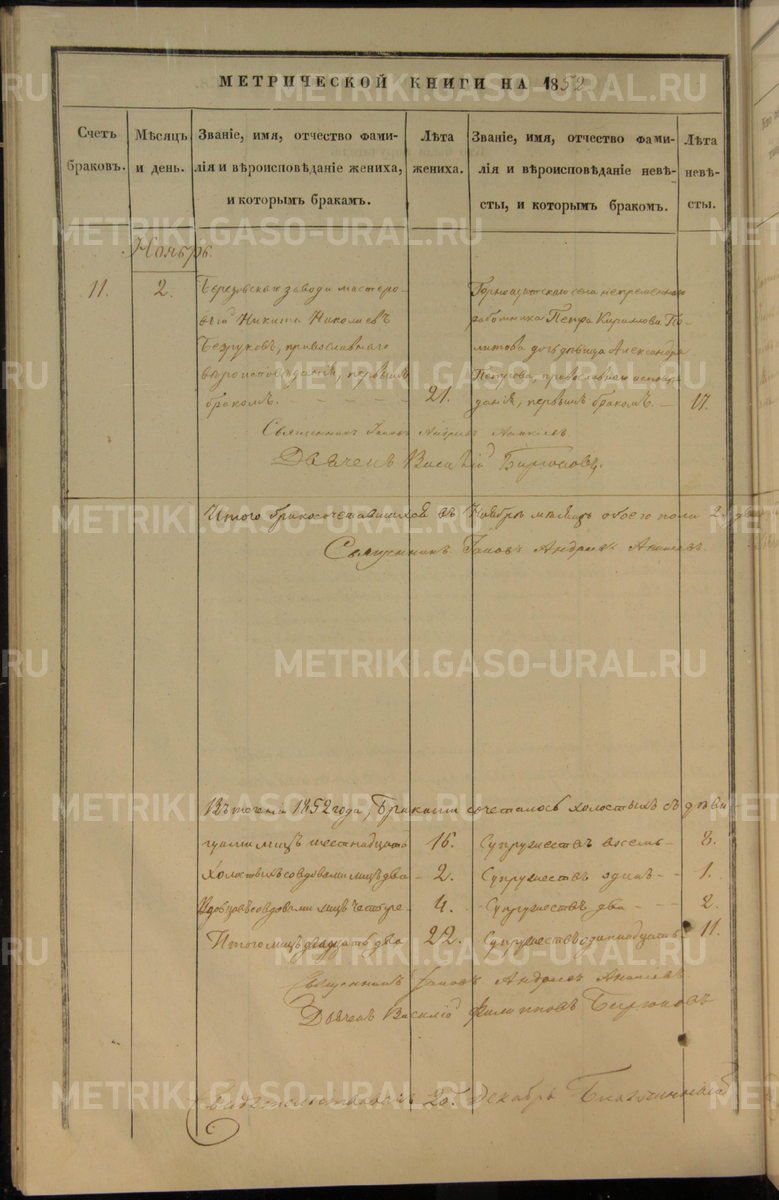 МЕТРИЧЕСКОЙ КНИГИ НА 1852
Счетъ браковъ.
Мѣсяцъ и день.
Званіе, имя, отчество фами-
лія и вѣроисповѣданіе жениха,
и которымъ бракамъ.
Лѣта жениха.
Званіе, имя, отчество фами-
лія и вѣроисповѣданіе невѣ-
сты, и которымъ бракомъ.
Лѣта невѣ-
сты.
Ноябрь.
11. 2.
Березовскаго завода мастеро-
вый Никита Николаевъ
православнаго
вѣроисповѣданія, первымъ
бракомъ. 21.
села непременнаго
работника Петра Кирилова По-
литова дочь дѣвица Александра
Петрова, православнаго исповѣ-
данія, первымъ бракомъ. 17.
Священникъ
Дьячекъ Василій
Итого бракосочетавшихся въ Ноябрѣ мѣсяцѣ обоего пола 2
Священникъ
Въ теченіи 1852 года, браками сочеталось холостыхъ съ дѣви-
цами лицъ шестнадцать 16. Супружествъ восемь 8.
Холостыхъ со вдовами лицъ два 2. Супружествъ одинъ 1.
Вдовцовъ со вдовами лицъ четыре 4. Супружествъ два 2.
Итого лицъ двадцать два 22. Супружествъ одинадцать 11.
Священникъ
Дьячекъ Василій Филипповъ
METRIKI.GASO-URAL.RU